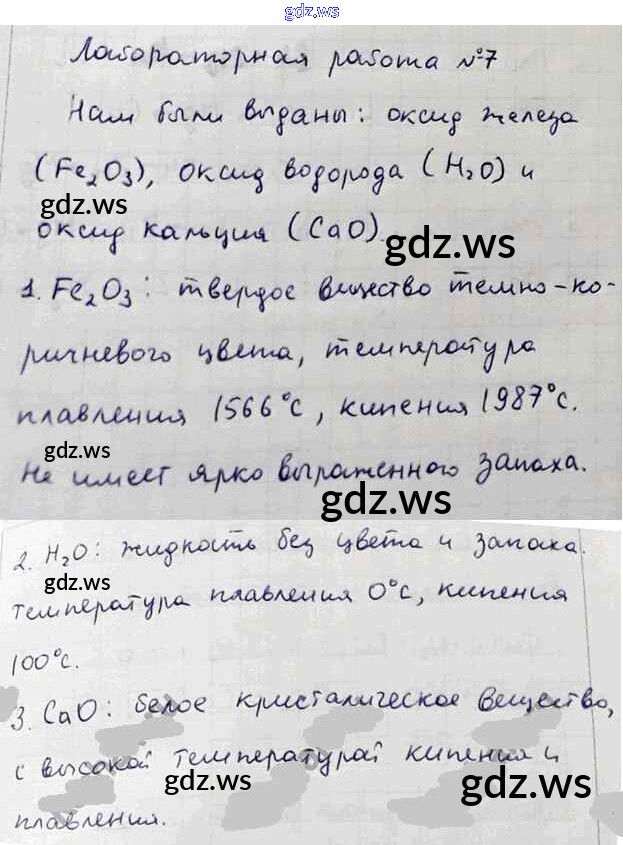 gdz.ws
Лабораторная работа №7
Нам были выданы: оксид железа
(Fe₂O₃), оксид водорода (H₂O) и
gdz.ws
оксид кальция (CaO).
gdz.ws
1. Fe₂O₃: твердое вещество темно-ко-
ричневого цвета, температура
плавления 1566°C, кипения 1987°C.
gdz.ws
Не имеет ярко выраженного запаха.
gdz.ws
2. H₂O: жидкость без цвета и запаха.
gdz.ws
температура плавления 0°C, кипения
100°C.
3. CaO: белое кристалическое вещество,
с высокой температурай кипения и
gdz.ws
gdz.ws
плавления.